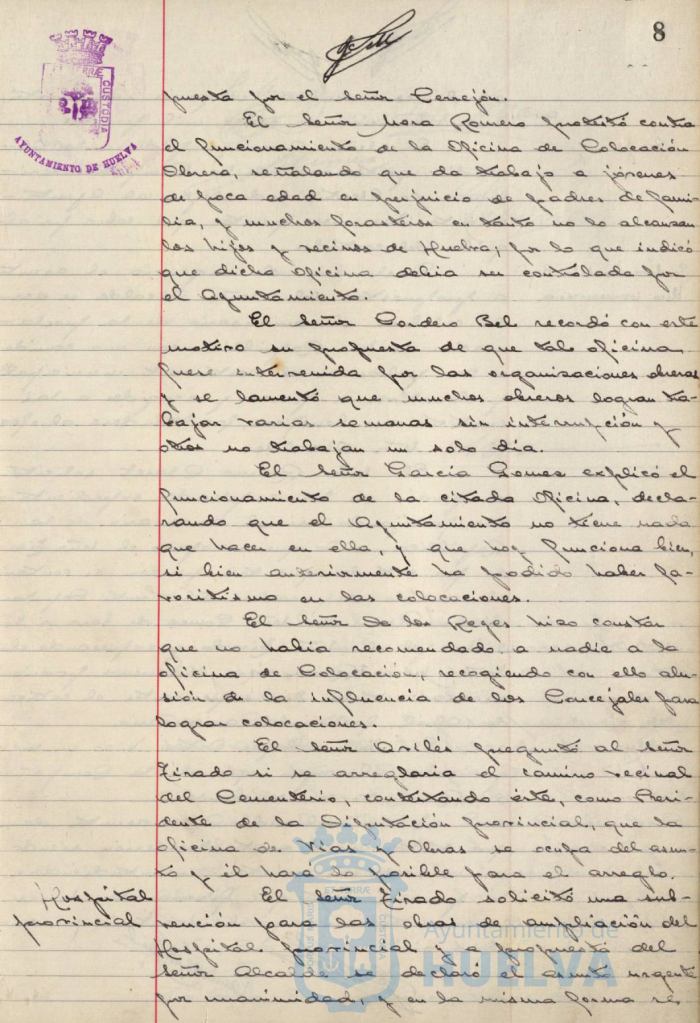 8
PORTUS MARIS ET TERRÆ CUSTODIA
AYUNTAMIENTO DE HUELVA
puesta por el señor Cerrejón.
El Señor Mora Romero protestó contra
el funcionamiento de la Oficina de Colocación
Obrera, señalando que da trabajo a jóvenes
de poca edad en perjuicio de padres de fami-
lia, y muchos forasteros en tanto no lo alcanzan
los hijos y vecinos de Huelva; por lo que indicó
que dicha Oficina debia ser controlada por
el Ayuntamiento.
El Señor Cordero Bel recordó con este
motivo su propuesta de que tal oficina
fuese intervenida por las organizaciones obreras
y se lamentó que muchos obreros logran tra-
bajar varias semanas sin interrupción y
otros no trabajan un solo día.
El Señor García Gomez explicó el
funcionamiento de la citada Oficina, decla-
rando que el Ayuntamiento no tiene nada
que hacer en ella, y que hoy funciona bien,
si bien anteriormente ha podido haber fa-
voritismo en las colocaciones.
El Señor de los Reyes hizo constar
que no había recomendado a nadie a la
oficina de Colocación, recogiendo con ello alu-
sión de la influencia de los Concejales para
lograr colocaciones.
El Señor Avilés preguntó al Señor
Tirado si se arreglaria el camino vecinal
del Cementerio, contestando éste, como Presi-
dente de la Diputación provincial, que la
oficina de Vias y Obras se ocupa del asun-
to y él hará lo posible para el arreglo.
Hospital
provincial
El Señor Tirado solicitó una sub-
vención para las obras de ampliación del
Hospital provincial y a propuesta del
Señor Alcalde se declaró el asunto urgente
por unanimidad, y en la misma forma se
Ayuntamiento de
HUELVA